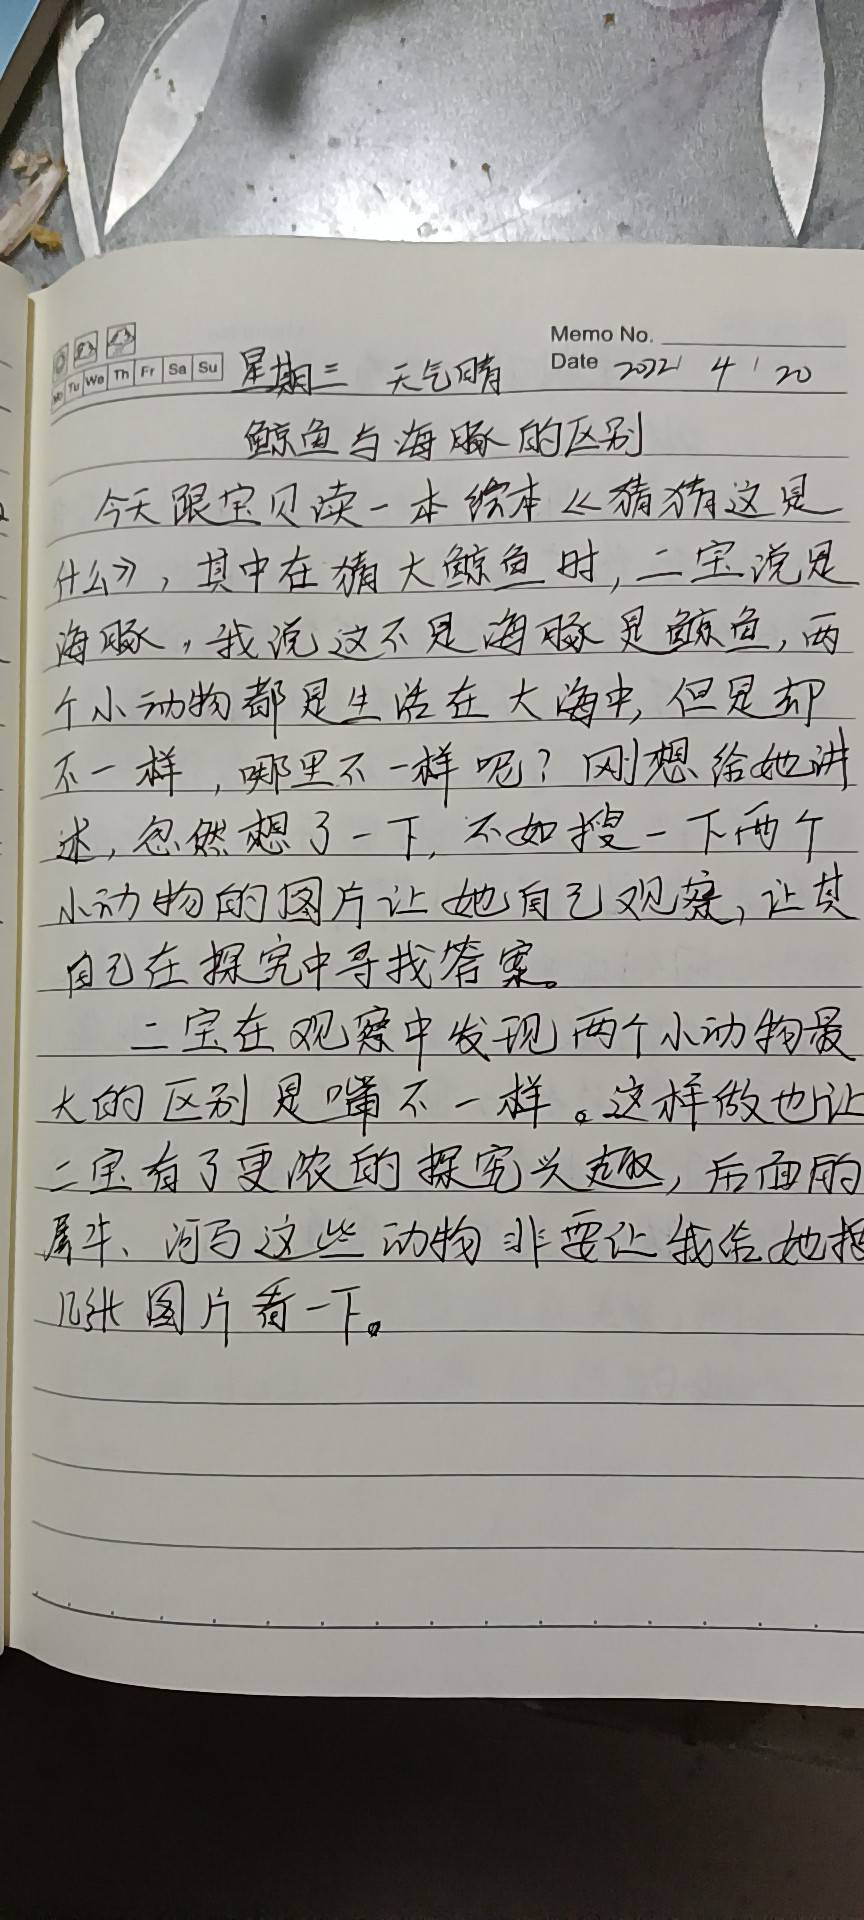 Memo No.
Mo Tu We Th Fr Sa Su 星期三 天气晴 Date 2022 4 20
鲸鱼与海豚的区别
今天跟宝贝读一本绘本《猜猜这是
什么》,其中在猜大鲸鱼时,二宝说是
海豚,我说这不是海豚是鲸鱼,两
个小动物都是生活在大海中,但是却
不一样,哪里不一样呢?刚想给她讲
述,忽然想了一下,不如搜一下两个
小动物的图片让她自己观察,让其
自己在探究中寻找答案。
二宝在观察中发现两个小动物最
大的区别是嘴不一样。这样做也让
二宝有了更浓的探究兴趣,后面的
犀牛、河马这些动物非要让我给她搜
几张图片看一下。